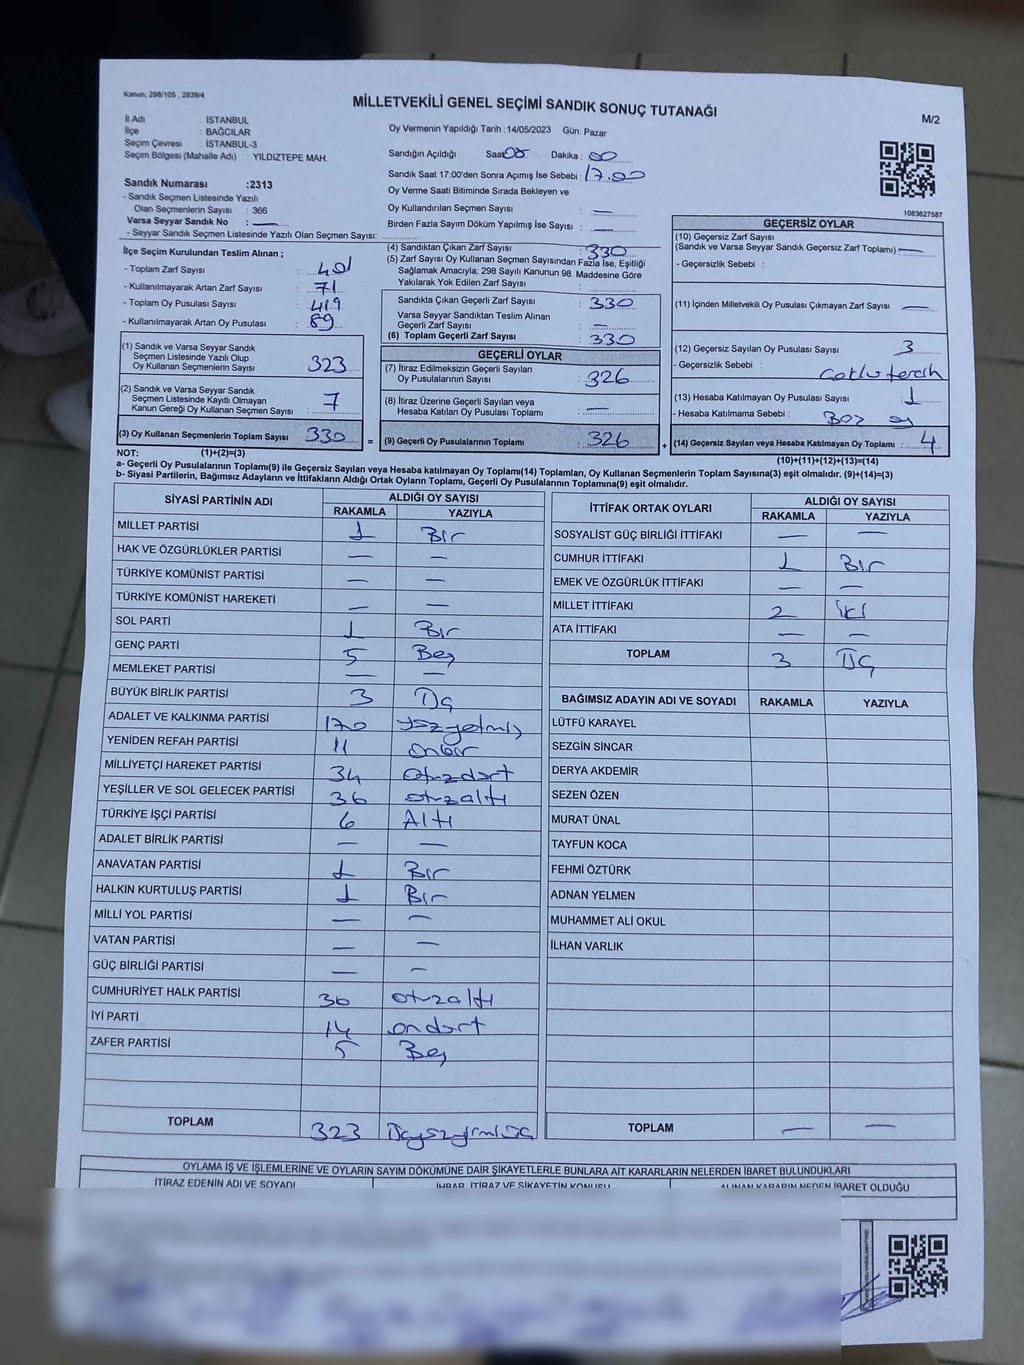 Kanun, 298/105 , 2839/4
MİLLETVEKİLİ GENEL SEÇİMİ SANDIK SONUÇ TUTANAĞI
M/2
İl Adı : İSTANBUL
İlçe : BAĞCILAR
Seçim Çevresi : İSTANBUL-3
Seçim Bölgesi (Mahalle Adı) : YILDIZTEPE MAH.
Oy Vermenin Yapıldığı Tarih :14/05/2023 Gün: Pazar
Sandığın Açıldığı Saat: 08 Dakika: 00
Sandık Saat 17:00'den Sonra Açımış İse Sebebi : 17.00
Oy Verme Saati Bitiminde Sırada Bekleyen ve
Oy Kullandırılan Seçmen Sayısı : —
Birden Fazla Sayım Döküm Yapılmış İse Sayısı : —
1083627587
Sandık Numarası :2313
- Sandık Seçmen Listesinde Yazılı
Olan Seçmenlerin Sayısı : 366
Varsa Seyyar Sandık No : —
- Seyyar Sandık Seçmen Listesinde Yazılı Olan Seçmen Sayısı:
İlçe Seçim Kurulundan Teslim Alınan ;
- Toplam Zarf Sayısı : 401
- Kullanılmayarak Artan Zarf Sayısı : 71
- Toplam Oy Pusulası Sayısı : 419
- Kullanılmayarak Artan Oy Pusulası : 89
(1) Sandık ve Varsa Seyyar Sandık
Seçmen Listesinde Yazılı Olup
Oy Kullanan Seçmenlerin Sayısı : 323
(2) Sandık ve Varsa Seyyar Sandık
Seçmen Listesinde Kayıtlı Olmayan
Kanun Gereği Oy Kullanan Seçmen Sayısı : 7
(3) Oy Kullanan Seçmenlerin Toplam Sayısı : 330
(1)+(2)=(3)
(4) Sandıktan Çıkan Zarf Sayısı : 330
(5) Zarf Sayısı Oy Kullanan Seçmen Sayısından Fazla İse, Eşitliği
Sağlamak Amacıyla; 298 Sayılı Kanunun 98. Maddesine Göre
Yakılarak Yok Edilen Zarf Sayısı :
Sandıkta Çıkan Geçerli Zarf Sayısı : 330
Varsa Seyyar Sandıktan Teslim Alınan
Geçerli Zarf Sayısı : —
(6) Toplam Geçerli Zarf Sayısı : 330
GEÇERLİ OYLAR
(7) İtiraz Edilmeksizin Geçerli Sayılan
Oy Pusulalarının Sayısı : 326
(8) İtiraz Üzerine Geçerli Sayılan veya
Hesaba Katılan Oy Pusulası Toplamı : —
= (9) Geçerli Oy Pusulalarının Toplamı : 326 +
GEÇERSİZ OYLAR
(10) Geçersiz Zarf Sayısı
(Sandık ve Varsa Seyyar Sandık Geçersiz Zarf Toplamı) : —
- Geçersizlik Sebebi :
(11) İçinden Milletvekili Oy Pusulası Çıkmayan Zarf Sayısı : —
(12) Geçersiz Sayılan Oy Pusulası Sayısı : 3
- Geçersizlik Sebebi : Çoklu tercih
(13) Hesaba Katılmayan Oy Pusulası Sayısı : 1
- Hesaba Katılmama Sebebi : Boş oy
(14) Geçersiz Sayılan veya Hesaba Katılmayan Oy Toplamı : 4
(10)+(11)+(12)+(13)=(14)
NOT:
a- Geçerli Oy Pusulalarının Toplamı(9) ile Geçersiz Sayılan veya Hesaba katılmayan Oy Toplamı(14) Toplamları, Oy Kullanan Seçmenlerin Toplam Sayısına(3) eşit olmalıdır. (9)+(14)=(3)
b- Siyasi Partilerin, Bağımsız Adayların ve İttifakların Aldığı Ortak Oyların Toplamı, Geçerli Oy Pusulalarının Toplamına(9) eşit olmalıdır.
SİYASİ PARTİNİN ADI ALDIĞI OY SAYISI
RAKAMLA YAZIYLA
MİLLET PARTİSİ 1 Bir
HAK VE ÖZGÜRLÜKLER PARTİSİ — —
TÜRKİYE KOMÜNİST PARTİSİ — —
TÜRKİYE KOMÜNİST HAREKETİ — —
SOL PARTİ 1 Bir
GENÇ PARTİ 5 Beş
MEMLEKET PARTİSİ — —
BÜYÜK BİRLİK PARTİSİ 3 Üç
ADALET VE KALKINMA PARTİSİ 170 yüzyetmiş
YENİDEN REFAH PARTİSİ 11 onbir
MİLLİYETÇİ HAREKET PARTİSİ 34 otuzdört
YEŞİLLER VE SOL GELECEK PARTİSİ 36 otuzaltı
TÜRKİYE İŞÇİ PARTİSİ 6 Altı
ADALET BİRLİK PARTİSİ — —
ANAVATAN PARTİSİ 1 Bir
HALKIN KURTULUŞ PARTİSİ 1 Bir
MİLLİ YOL PARTİSİ — —
VATAN PARTİSİ — —
GÜÇ BİRLİĞİ PARTİSİ — —
CUMHURİYET HALK PARTİSİ 36 otuzaltı
İYİ PARTİ 14 ondört
ZAFER PARTİSİ 5 Beş
TOPLAM 323 Üçyüzyirmiüç
İTTİFAK ORTAK OYLARI ALDIĞI OY SAYISI
RAKAMLA YAZIYLA
SOSYALİST GÜÇ BİRLİĞİ İTTİFAKI — —
CUMHUR İTTİFAKI 1 Bir
EMEK VE ÖZGÜRLÜK İTTİFAKI — —
MİLLET İTTİFAKI 2 İki
ATA İTTİFAKI — —
TOPLAM 3 Üç
BAĞIMSIZ ADAYIN ADI VE SOYADI RAKAMLA YAZIYLA
LÜTFÜ KARAYEL
SEZGİN SİNCAR
DERYA AKDEMİR
SEZEN ÖZEN
MURAT ÜNAL
TAYFUN KOCA
FEHMİ ÖZTÜRK
ADNAN YELMEN
MUHAMMET ALİ OKUL
İLHAN VARLIK
TOPLAM — —
OYLAMA İŞ VE İŞLEMLERİNE VE OYLARIN SAYIM DÖKÜMÜNE DAİR ŞİKAYETLERLE BUNLARA AİT KARARLARIN NELERDEN İBARET BULUNDUKLARI
İTİRAZ EDENİN ADI VE SOYADI İHBAR, İTİRAZ VE ŞİKAYETİN KONUSU ALINAN KARARIN NEDEN İBARET OLDUĞU